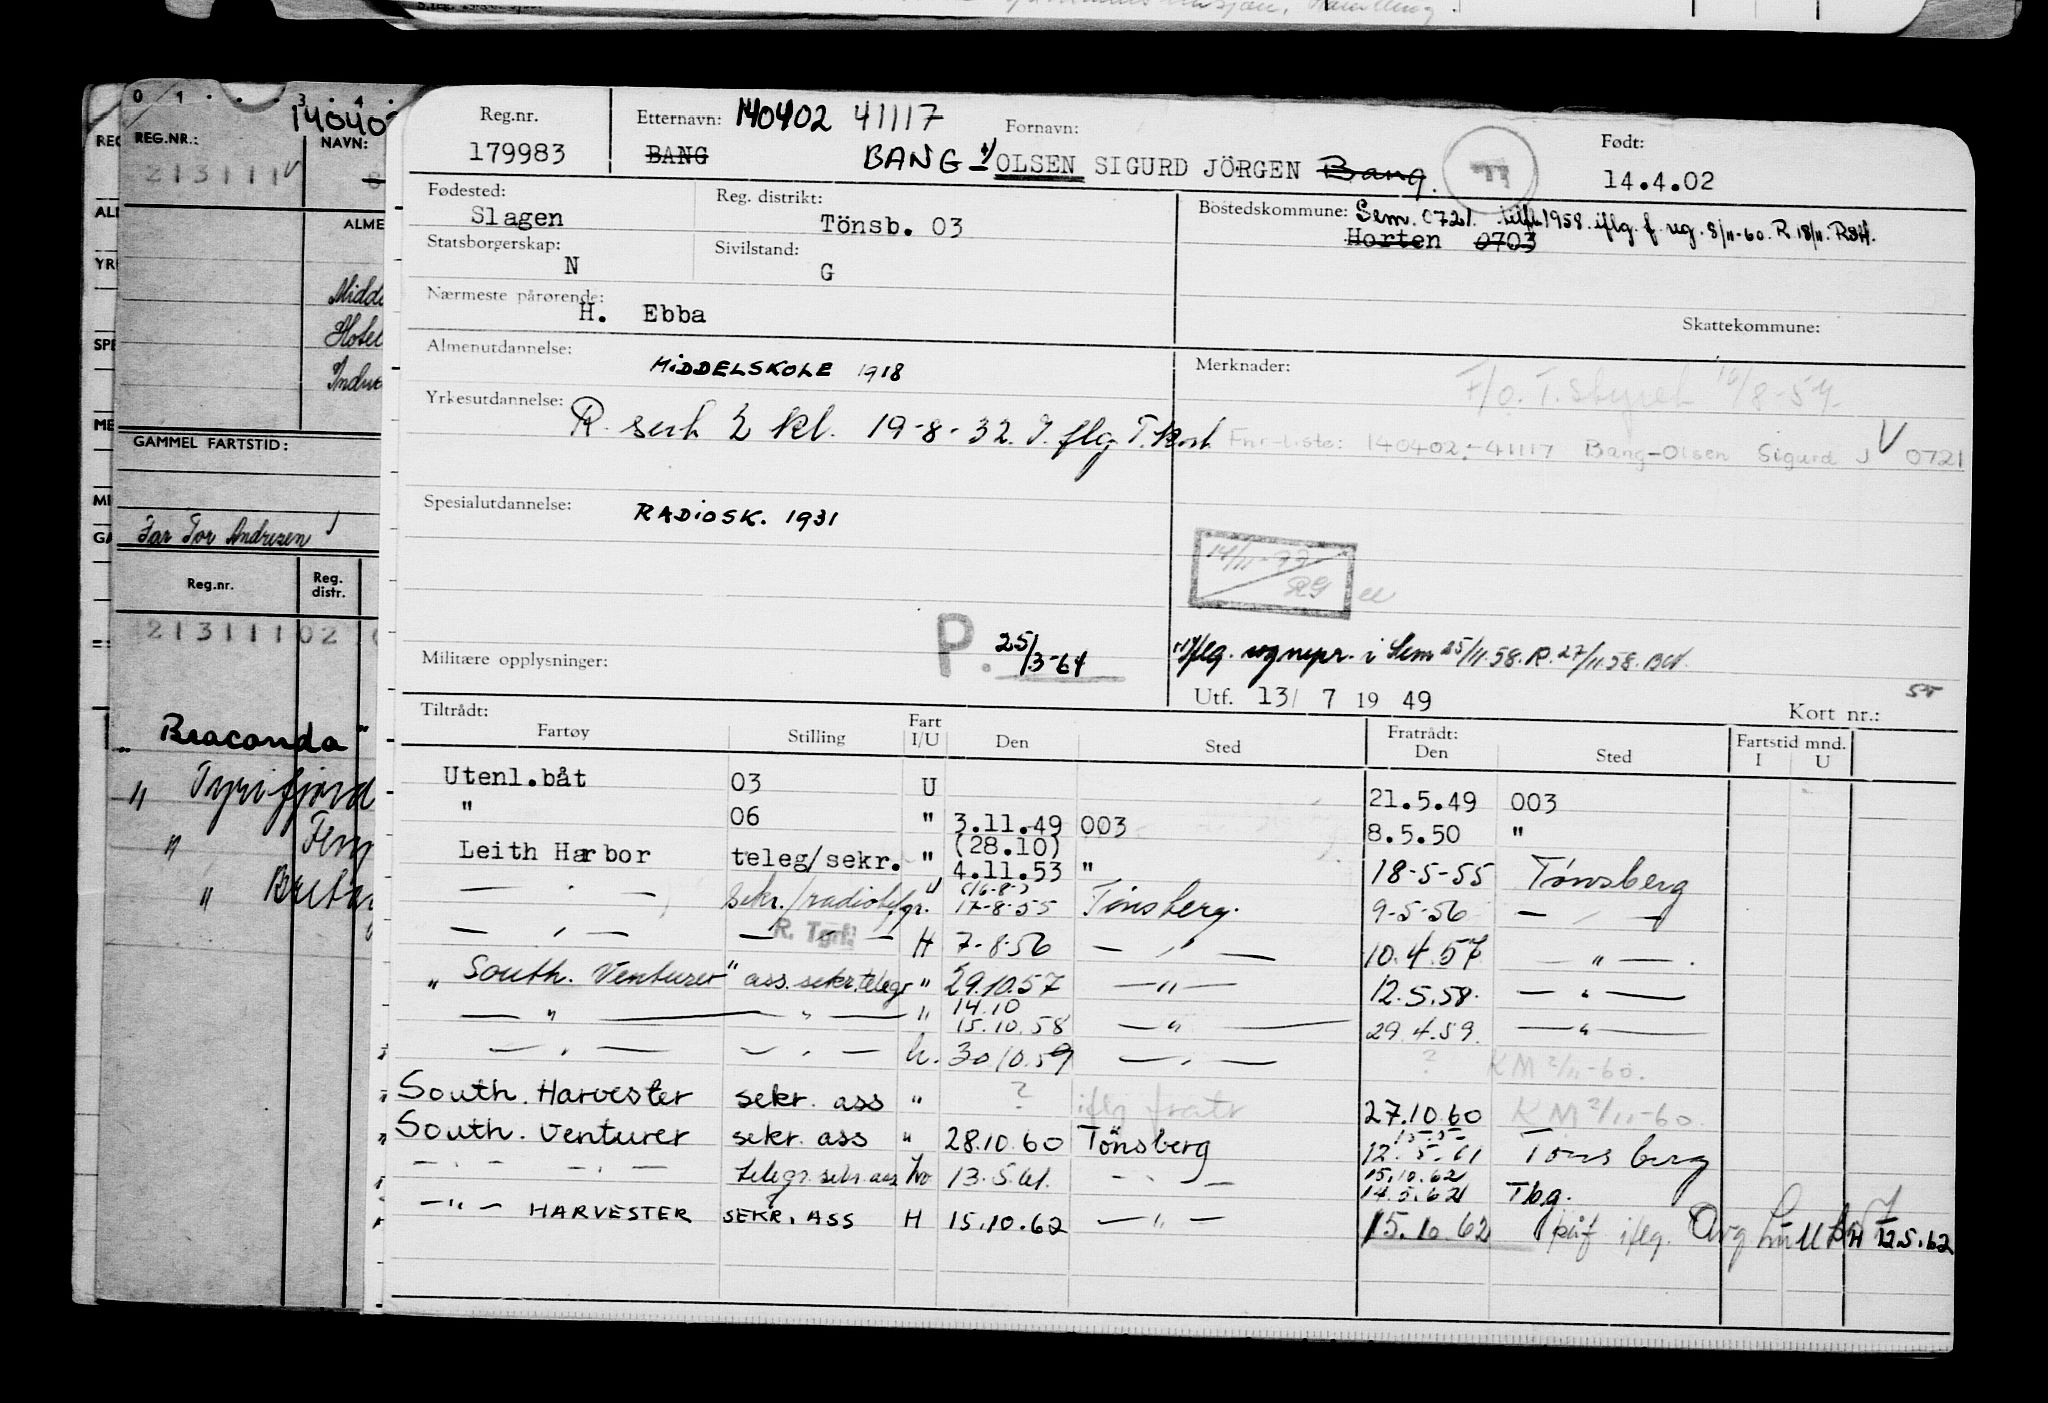 0 1 . . . 3 . 4 .
REG.NR.:
NAVN:
213111 V
ALME
Midde
Hotel
GAMMEL FARTSTID:
Far Tor Andresen
Reg.nr.
Reg. distr.
213111 02
" Braconda "
" Tyrifjord
"
"
Reg.nr.
179983
Etternavn: 140402 41117
Fornavn:
BANG BANG +) OLSEN SIGURD JÖRGEN Bang.
Født:
14.4.02
Fødested:
Slagen
Reg. distrikt:
Tönsb. 03
Bostedskommune: Sem. 0721. 1958. iflg. f. reg. 8/11-60. R 18/11.
Horten 0703
Statsborgerskap:
N
Sivilstand:
G
Nærmeste pårørende:
H. Ebba
Skattekommune:
Almenutdannelse:
MIDDELSKOLE 1918
Merknader:
F/o. T. Styret 16/8-54.
Yrkesutdannelse:
R. sert 2 kl. 19-8-32. I. flg. T. kort
Fnr-liste: 140402-41117 Bang-Olsen Sigurd J V 0721
Spesialutdannelse:
RADIOSK. 1931
Militære opplysninger:
P. 25/3-64
+) iflg. sognepr. i Sem 25/11.58. R. 27/11.58.
Utf. 13/ 7 19 49
Kort nr.:
Tiltrådt:
Fartøy
Stilling
Fart I/U
Den
Sted
Fratrådt:
Den
Sted
Fartstid mnd.
I U
Utenl.båt 03 U 21.5.49 003
" 06 " 3.11.49 003 8.5.50 "
(28.10)
Leith Harbor teleg/sekr. " 4.11.53 " 18-5-55 Tønsberg
(16-8-)
— " — sekr./radiotelgr. " 17-8-55 Tønsberg. 9-5-56 — " —
— " — R. Tgrf. H 7-8-56 — " — 10.4.57 — " — .
" South. Venturer " ass. sekr. telegr " 29.10.57 — " — 12.5.58. — " —
14.10
— " — — " — " 15.10.58 — " — 29.4.59. — " —
— " — — " — h. 30/10.59 — " — ? KM 2/11-60.
South. Harvester sekr. ass " ? iflg fratr 27.10.60 KM 2/11-60.
" South. Venturer sekr. ass " 28.10.60 Tönsberg 12.5.61 Tönsberg
15.10.62
— " — — " — telegr. sekr. ass 13.5.61. — " — 14.5.62 Tbg.
— " — HARVESTER SEKR. ASS H 15.10.62 — " — 15.10.62 påf iflg. 12.5.62